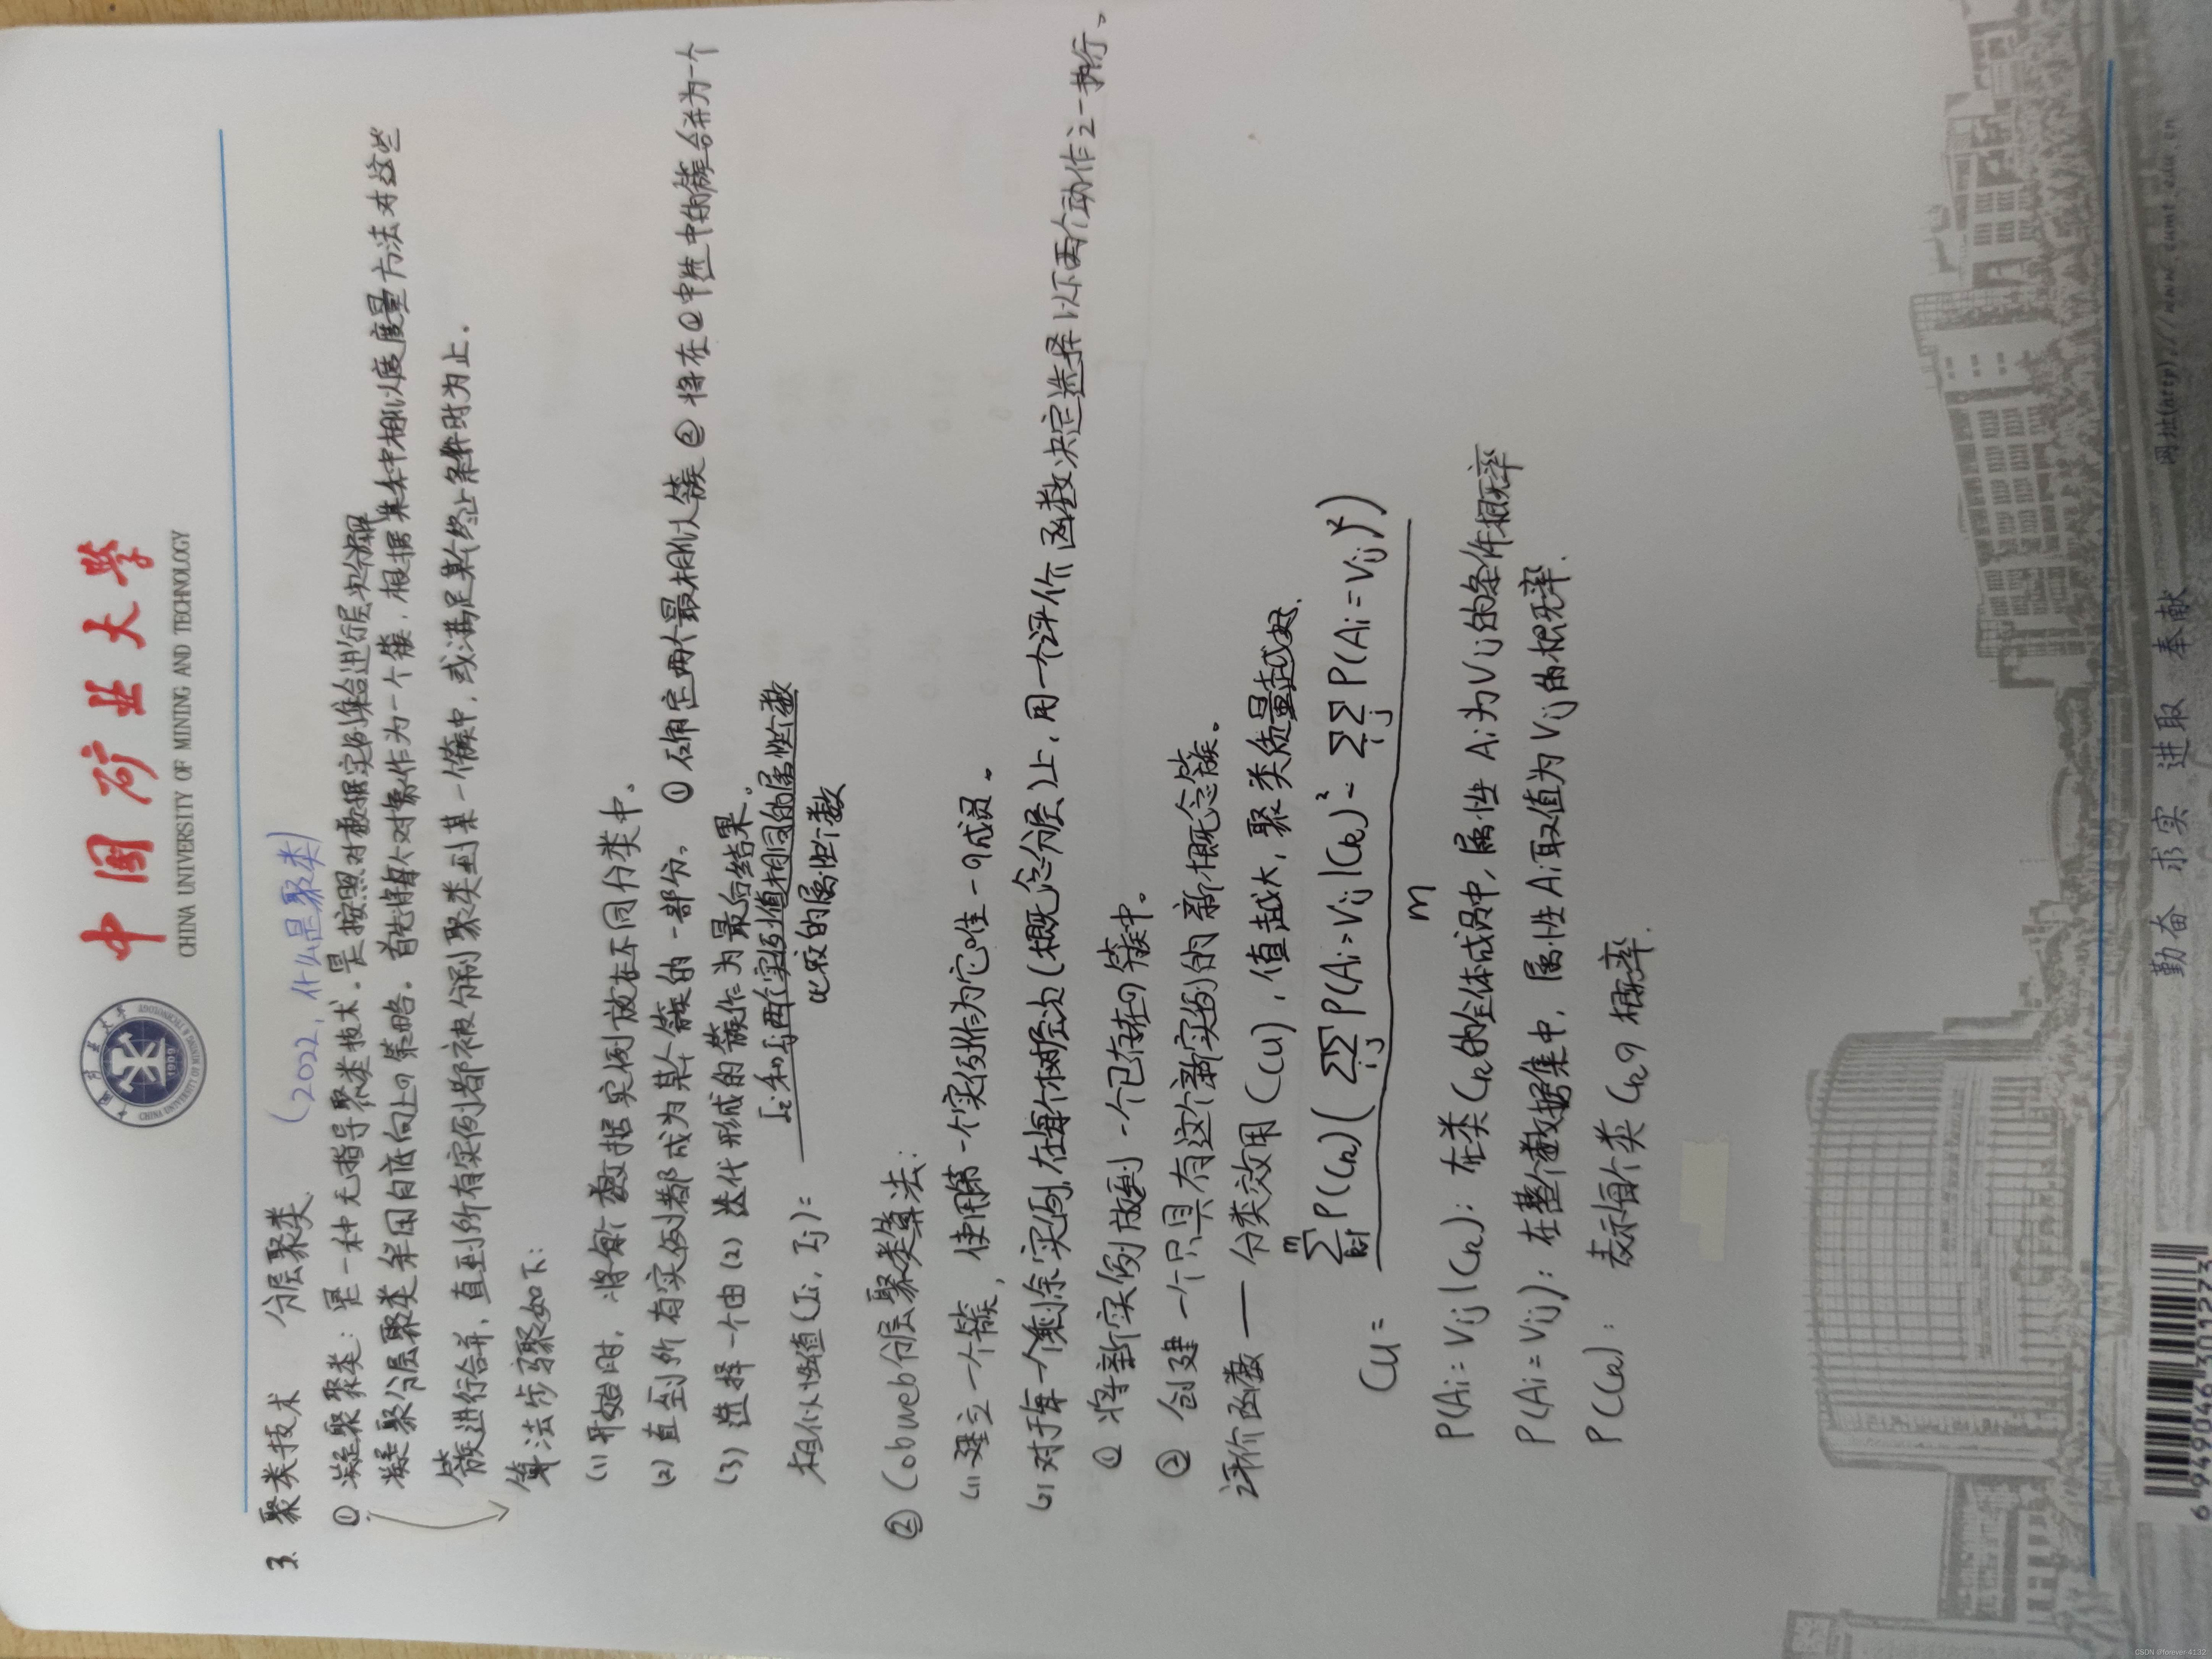 中国矿业大学
CHINA UNIVERSITY OF MINING AND TECHNOLOGY
3. 聚类技术 分层聚类 (2022, 什么是聚类)
① 凝聚聚类: 是一种无指导聚类技术. 是按照对数据实例集合进行层次分解
凝聚分层聚类采用自底向上の策略。首先将每个对象作为一个簇, 根据某种相似度度量方法对这些
簇进行合并, 直到所有实例都被分别聚类到某一个簇中, 或满足某个终止条件时为止.
算法步骤如下:
(1) 开始时, 将每个数据实例放在不同分类中.
(2) 直至到所有实例都成为某个簇的一部分. ① 确定两个最相似簇 ② 将在①中选中的簇合并为一个
(3) 选择一个由(2)迭代形成的簇作为最后结果.
相似性值(Ii, Ij) = Ii和Ij两个实例值相同的属性个数
比较的属性个数
② Cobweb分层聚类算法:
(1) 建立一个簇, 使用第一个实例作为它唯一の成员.
(2) 对于每一个剩余实例, 在每个树层次(概念分层)上, 用一个评价函数决定选择以下两个动作之一执行.
① 将新实例放到一个已存在の簇中.
② 创建一个只具有这个新实例的新概念簇.
评价函数 — 分类效用(CU), 值越大, 聚类质量越好.
CU = ∑_{k=1}^{m} P(Ck) ( ∑_i ∑_j P(Ai = Vij | Ck)² - ∑_i ∑_j P(Ai = Vij)² )
m
P(Ai = Vij | Ck): 在类Ck的全体成员中, 属性Ai为Vij的条件概率
P(Ai = Vij): 在整个数据集中, 属性Ai取值为Vij的概率.
P(Ck): 表示每个类Ckの概率.
勤奋 求实 进取 奉献
网址(http)://www.cumt.edu.cn
6949046301273
CSDN @forever 4132